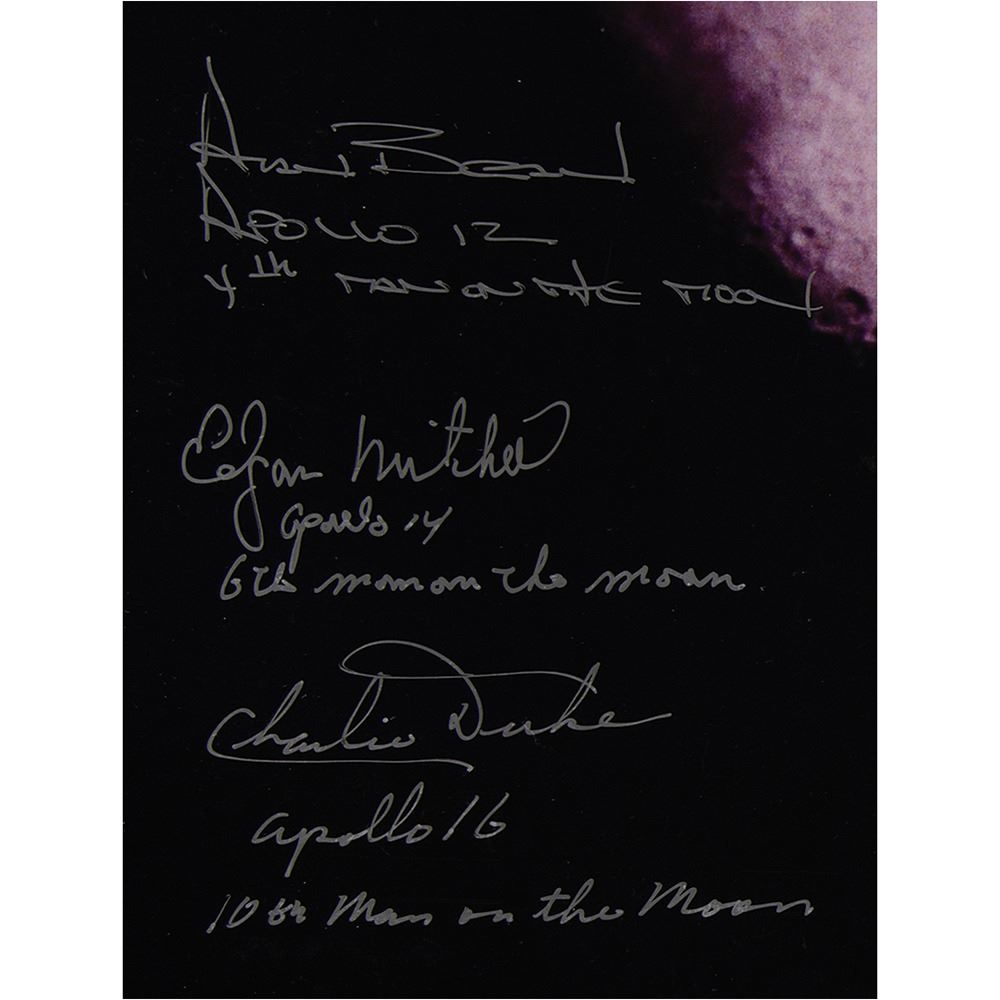 Alan Bean
APOLLO 12
4th MAN ON THE MOON
Edgar Mitchell
Apollo 14
6th man on the moon
Charlie Duke
Apollo 16
10th Man on the Moon